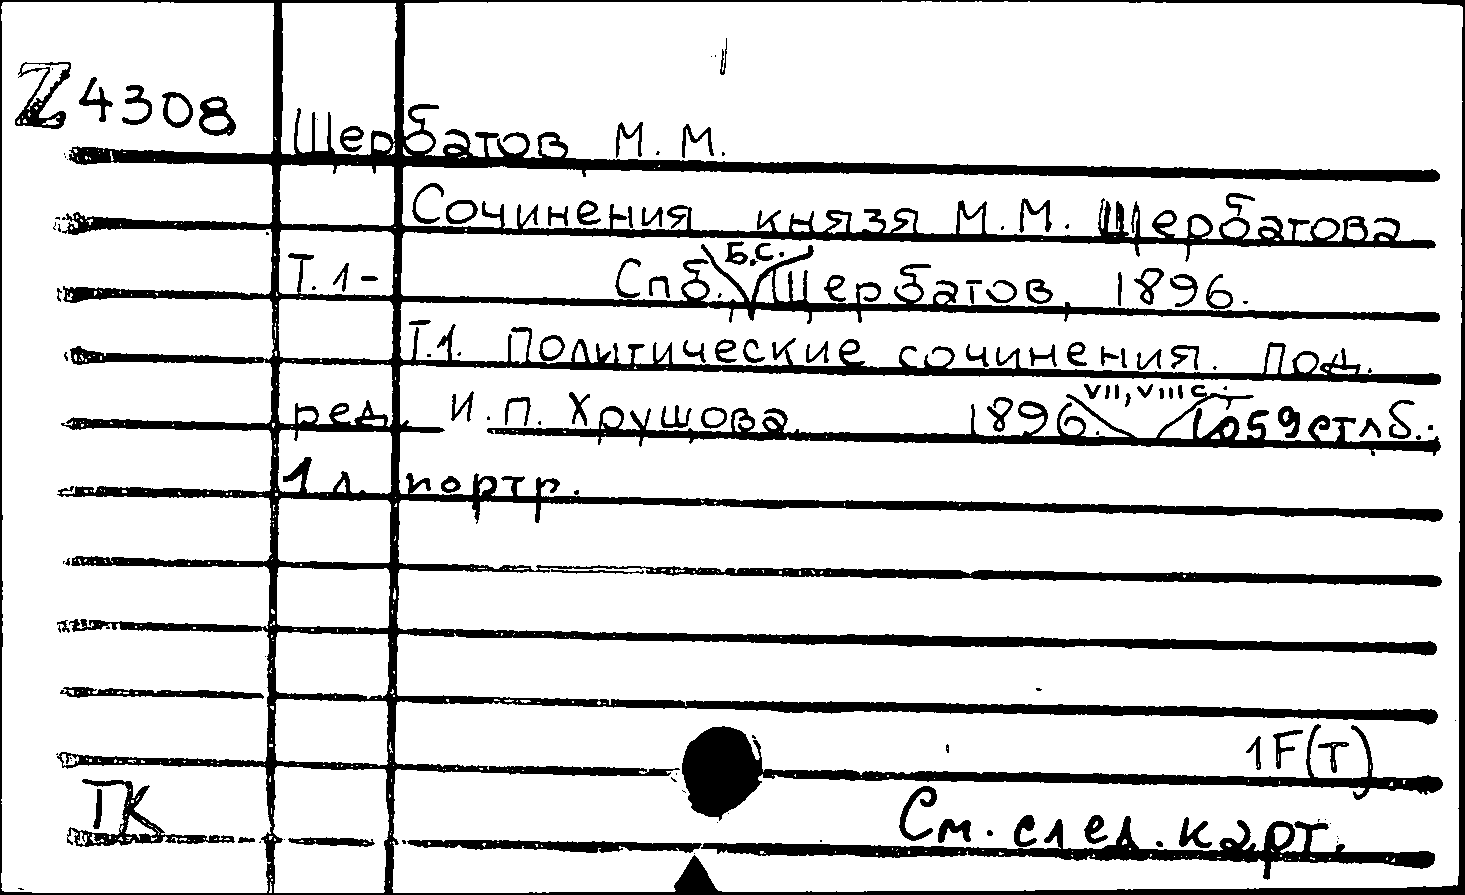 Z4308
Щербатов, М. М.
Сочинения князя М. М. Щербатова
Т. 1- Спб., Б.С. Щербатов, 1896.
Т.1. Политические сочинения. Под.
ред. И. П. Хрушова. 1896. VII, VIII с., 1059 стлб.:
1 л. портр.
1F(T)
ТК См. след. карт.